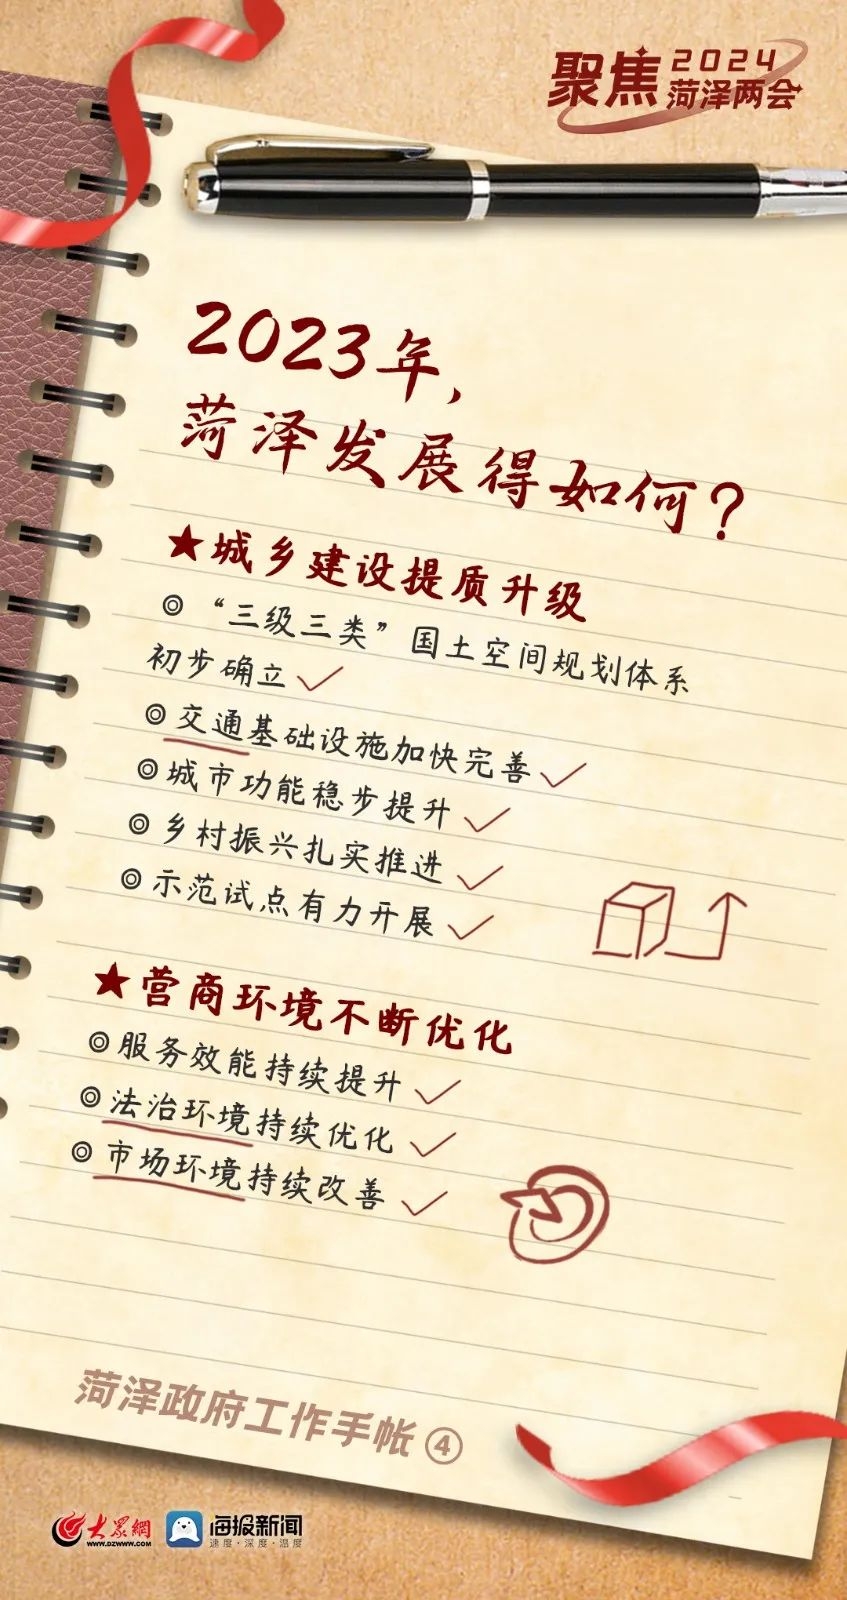 聚焦 2024
菏泽两会
2023年，
菏泽发展得如何？
★城乡建设提质升级
◎“三级三类”国土空间规划体系
初步确立
◎交通基础设施加快完善
◎城市功能稳步提升
◎乡村振兴扎实推进
◎示范试点有力开展
★营商环境不断优化
◎服务效能持续提升
◎法治环境持续优化
◎市场环境持续改善
菏泽政府工作手帐④
大眾網 海报新闻
WWW.DZWWW.COM 速度·深度·温度